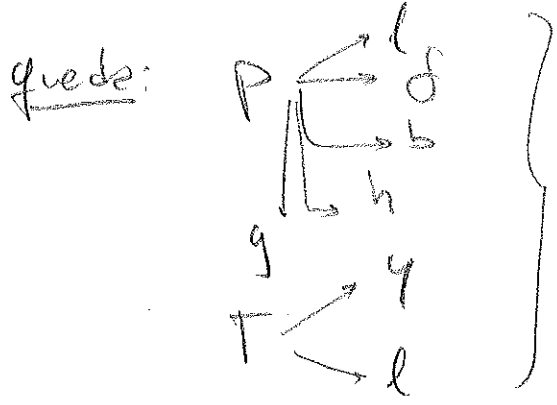 queda:
P → l
→ δ
→ b
→ h
g
T → y
→ l